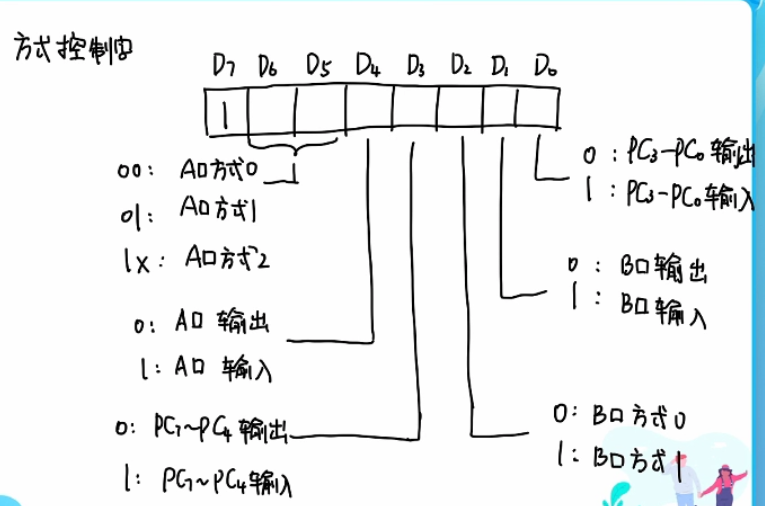 方式控制字
D7 D6 D5 D4 D3 D2 D1 D0
1
00: A口方式0
01: A口方式1
1x: A口方式2
0: A口 输出
1: A口 输入
0: PC7~PC4 输出
1: PC7~PC4 输入
0: PC3-PC0 输出
1: PC3-PC0 输入
0: B口 输出
1: B口 输入
0: B口方式0
1: B口方式1